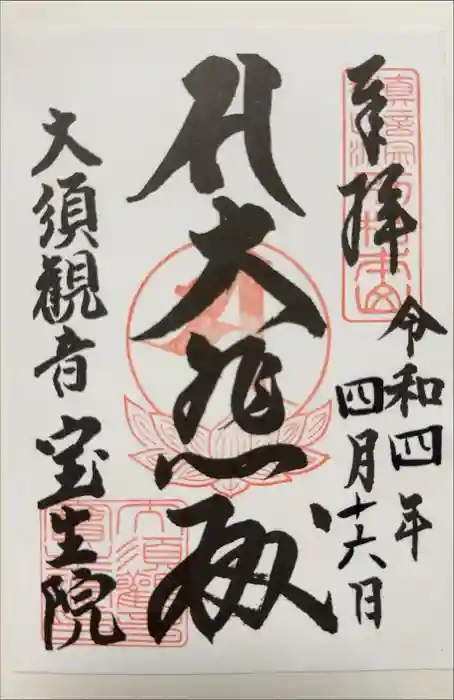 奉拝
令和四年
四月十六日
大悲殿
大須観音 宝生院
大須觀音